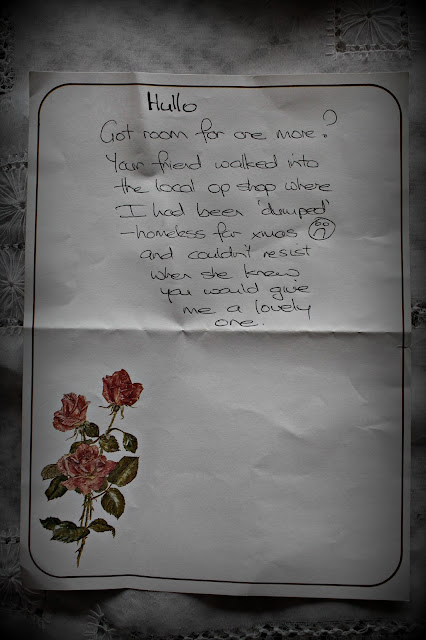 Hullo
Got room for one more?
Your friend walked into
the local op shop where
I had been 'dumped'
-homeless for xmas
and couldn't resist
when she knew
you would give
me a lovely
one.